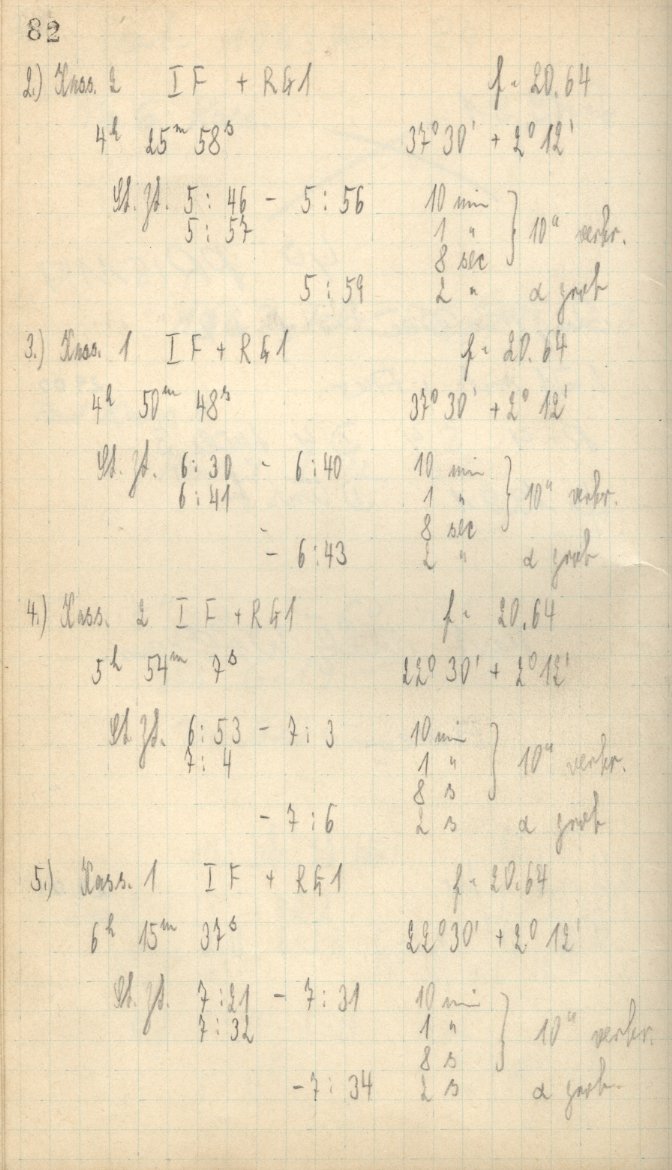 82
2.) Kass. 2 I F + RG1 f = 20.64
4h 25m 58s 37° 30' + 2° 12'
St. Zt. 5 : 46 - 5 : 56 10 min
5 : 57 1 " } 10" verbr.
8 sec
5 : 59 2 " α grob
3.) Kass. 1 I F + RG1 f = 20.64
4h 50m 48s 37° 30' + 2° 12'
St. Zt. 6 : 30 - 6 : 40 10 min
6 : 41 1 " } 10" verbr.
8 sec
- 6 : 43 2 " α grob
4.) Kass. 2 I F + RG1 f = 20.64
5h 54m 7s 22° 30' + 2° 12'
St. Zt. 6 : 53 - 7 : 3 10 min
7 : 4 1 " } 10" verbr.
8 s
- 7 : 6 2 s α grob
5.) Kass. 1 I F + RG1 f = 20.64
6h 15m 37s 22° 30' + 2° 12'
St. Zt. 7 : 21 - 7 : 31 10 min
7 : 32 1 " } 10" verbr.
8 s
- 7 : 34 2 s α grob